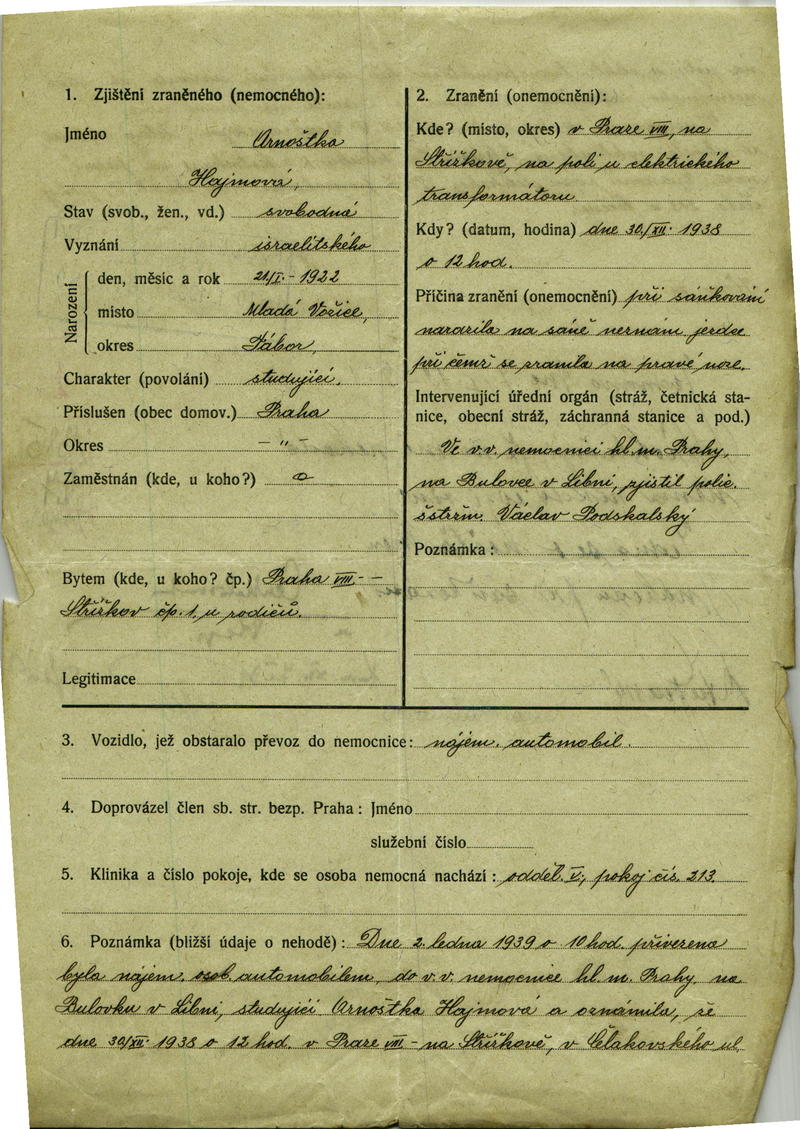 1. Zjištění zraněného (nemocného):
Jméno Arnoštka
Hajmová,
Stav (svob., žen., vd.) svobodná
Vyznání israelitského
Narození
den, měsíc a rok 21/I. - 1922
místo Mladá Vožice,
okres Tábor,
Charakter (povolání) studující.
Příslušen (obec domov.) Praha
Okres - " -
Zaměstnán (kde, u koho?)
Bytem (kde, u koho? čp.) Praha VIII. -
Střížkov čp. 1. u rodičů.
Legitimace
2. Zranění (onemocnění):
Kde? (místo, okres) v Praze VIII, na
Střížkově, na poli u elektrického
transformátoru.
Kdy? (datum, hodina) dne 30/XII. 1938
o 12 hod.
Příčina zranění (onemocnění) při sáňkování
narazila na sáně neznám. jezdce
při čemž se zranila na pravé noze.
Intervenující úřední orgán (stráž, četnická sta-
nice, obecní stráž, záchranná stanice a pod.)
Ve v.v. nemocnici hl. m. Prahy,
na Bulovce v Libni, zjistil polic.
Václav Podskalský
Poznámka:
3. Vozidlo, jež obstaralo převoz do nemocnice: nájem. automobil.
4. Doprovázel člen sb. str. bezp. Praha: Jméno
služební číslo
5. Klinika a číslo pokoje, kde se osoba nemocná nachází: odděl. V., pokoj čís. 213.
6. Poznámka (bližší údaje o nehodě): Dne 2. ledna 1939 o 10 hod. přivezena
byla nájem. osob. automobilem, do v.v. nemocnice hl. m. Prahy, na
Bulovku v Libni, studující Arnoštka Hajmová a oznámila, že
dne 30/XII. 1938 o 12 hod. v Praze VIII - na Střížkově, v Čelakovského ul.